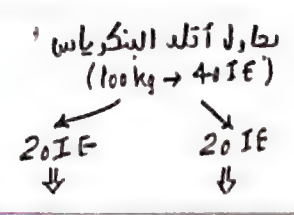 بحاول أقلد البنكرياس
(100kg → 40IE)
20IE 20IE